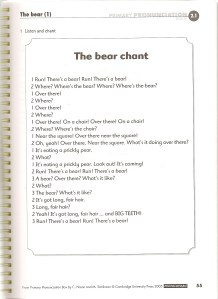 The bear (1)
PRIMARY PRONUNCIATION
2.1
1 Listen and chant
The bear chant
1 Run! There's a bear! Run! There's a bear!
2 Where? Where's the bear? Where? Where's the bear?
1 Over there!
2 Where?
1 Over there!
2 Where?
1 Over there! On a chair! Over there! On a chair!
2 Where? Where's the chair?
1 Near the square! Over there near the square!
2 Oh, yeah! Over there. Near the square. What's it doing over there?
1 It's eating a prickly pear.
2 What?
1 It's eating a prickly pear. Look out! It's coming!
2 Run! There's a bear! Run! There's a bear!
3 A bear? Over there? What's it like?
2 What?
3 The bear? What's it like?
2 It's got long, fair hair.
3 Long, fair hair?
2 Yeah! It's got long, fair hair ... and BIG TEETH!
3 Run! There's a bear! Run! There's a bear!
From Primary Pronunciation Box by C. Nixon and M. Tomlinson © Cambridge University Press 2005